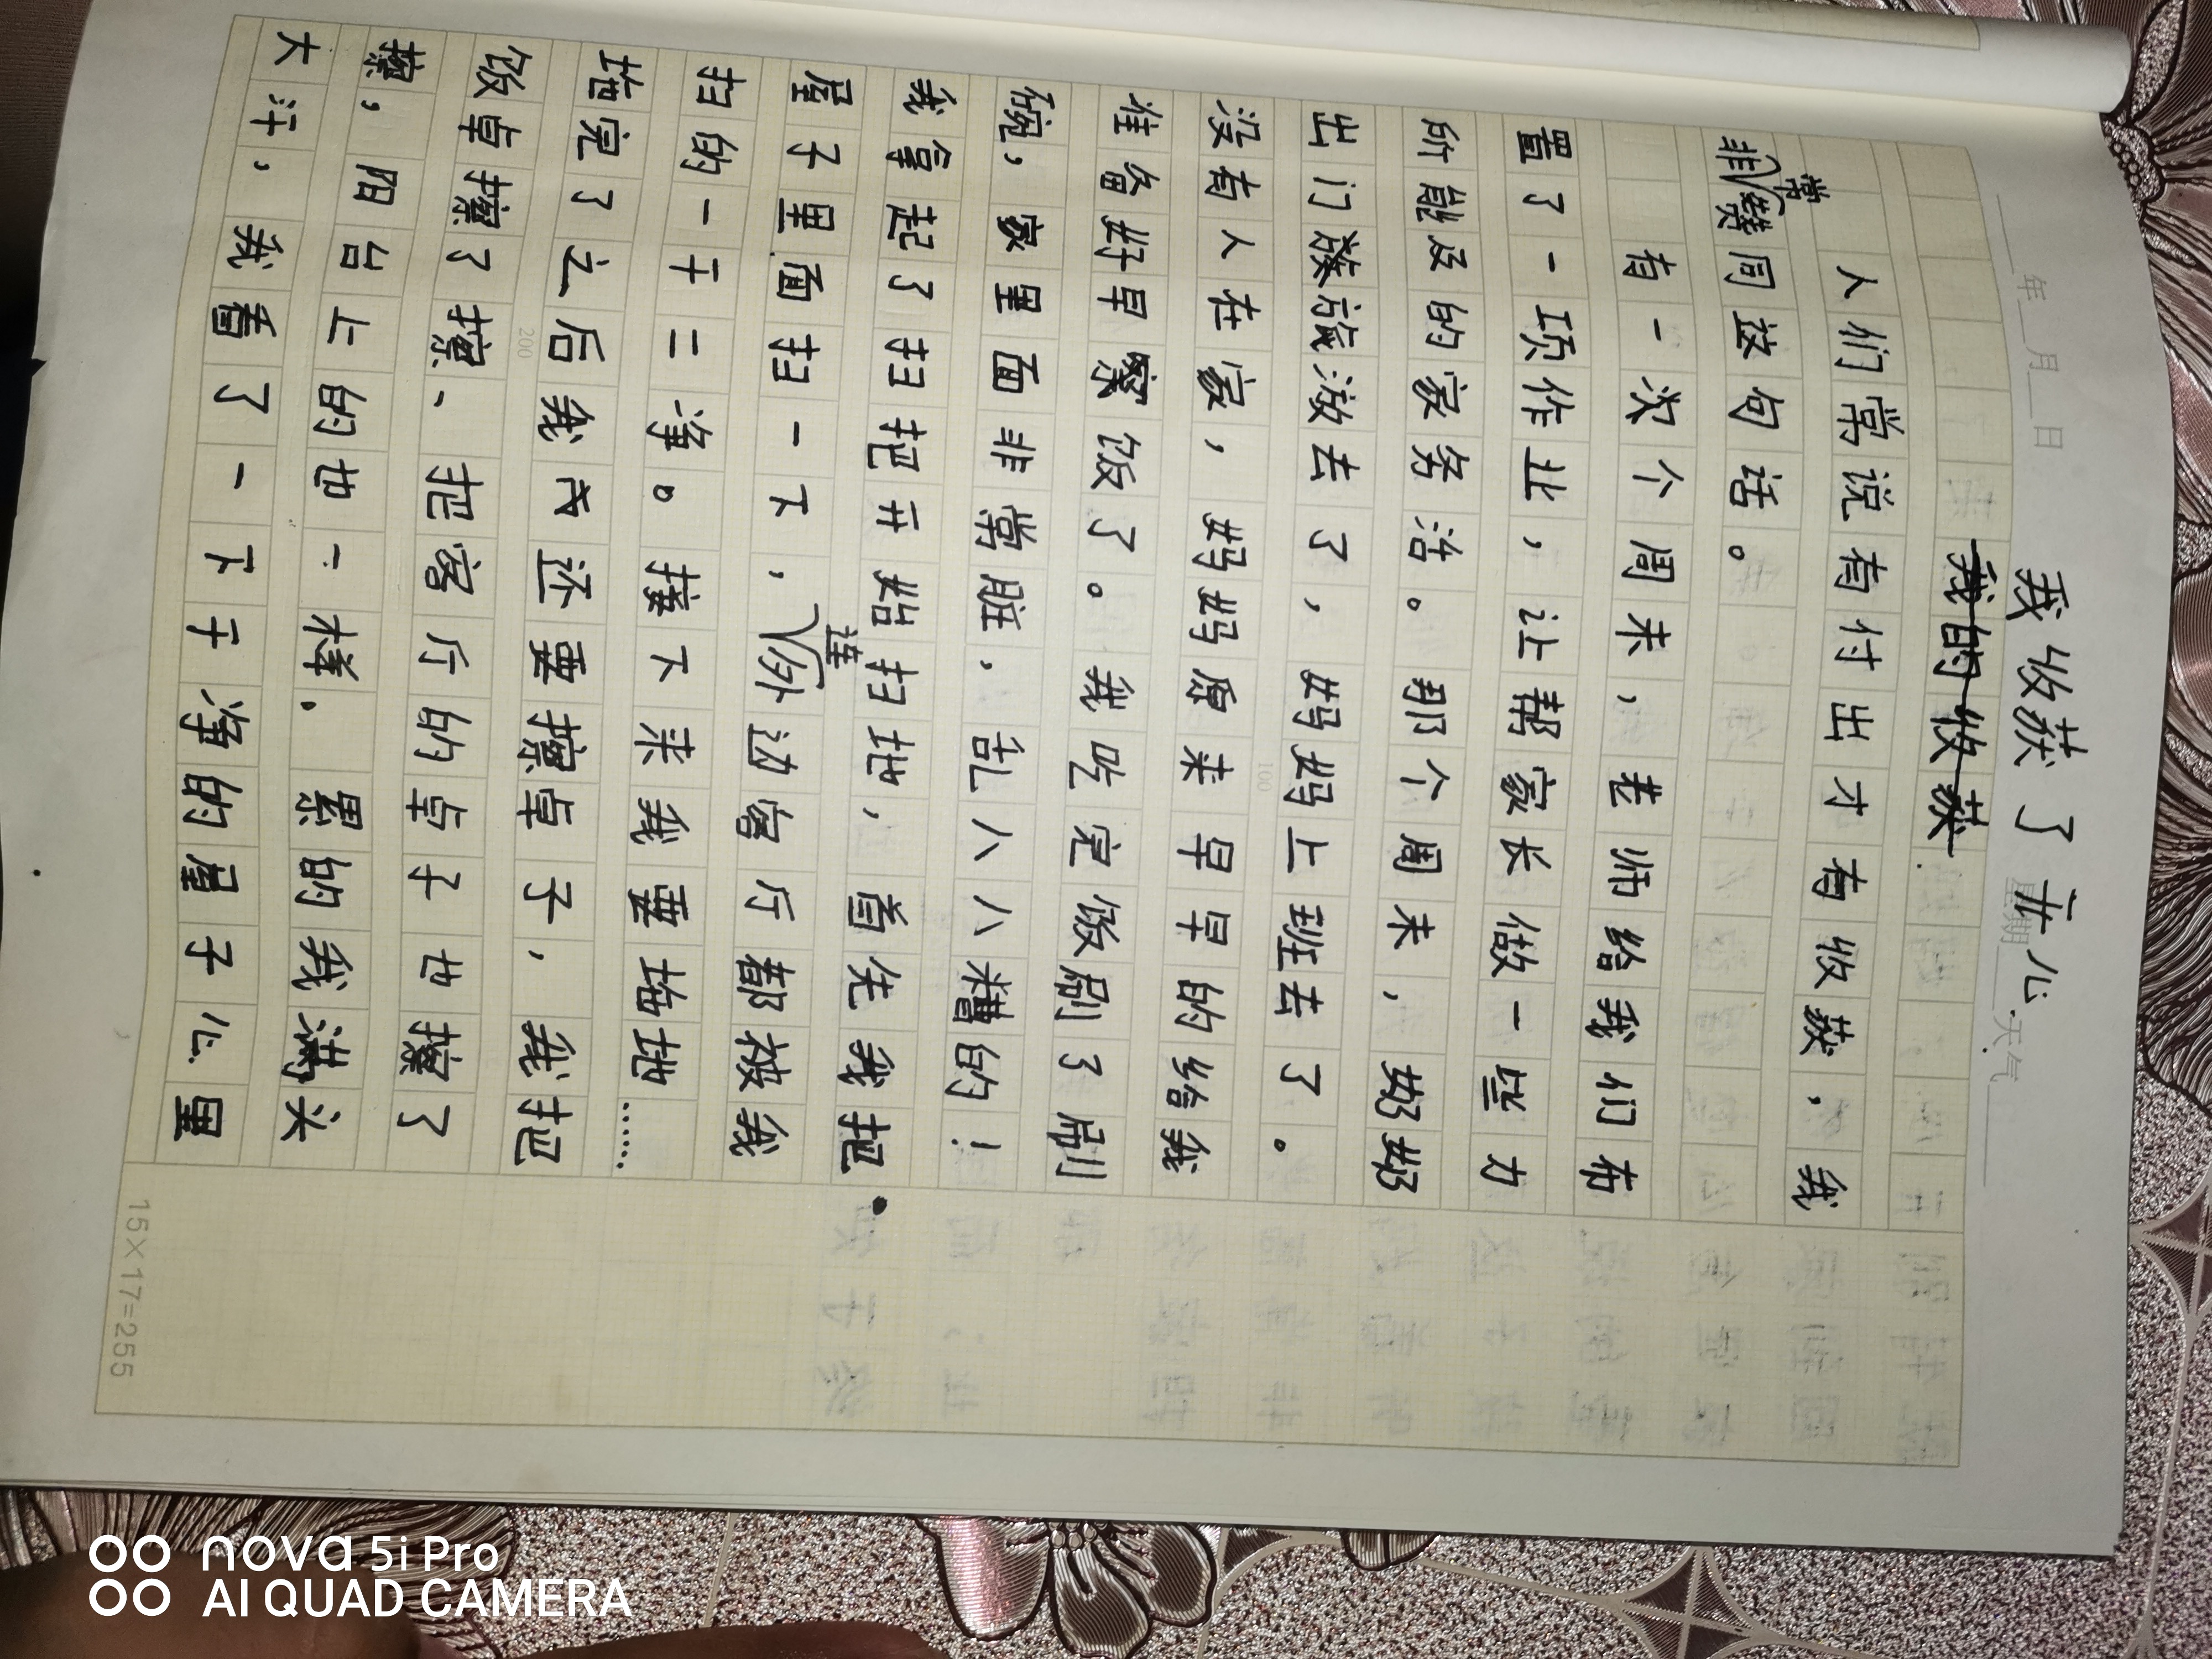 年 月 日 星期 天气
我收获了开心
我的收获
人们常说有付出才有收获，我
非常赞同这句话。
有一次个周末，老师给我们布
置了一项作业，让帮家长做一些力
所能及的家务活。那个周末，奶奶
出门旅游去了，妈妈上班去了。
没有人在家，妈妈原来早早的给我
准备好早饭了。我吃完饭刷了刷
碗，家里面非常脏，乱八八糟的！
我拿起了扫把开始扫地，首先我把
屋子里面扫一下，连外边客厅都被我
扫的一干二净。接下来我要拖地……
拖完了之后我还要擦桌子，我把
饭桌擦了擦、把客厅的桌子也擦了
擦，阳台上的也一样。累的我满头
大汗，我看了一下干净的屋子心里
100
200
15×17=255
nova 5i Pro
AI QUAD CAMERA